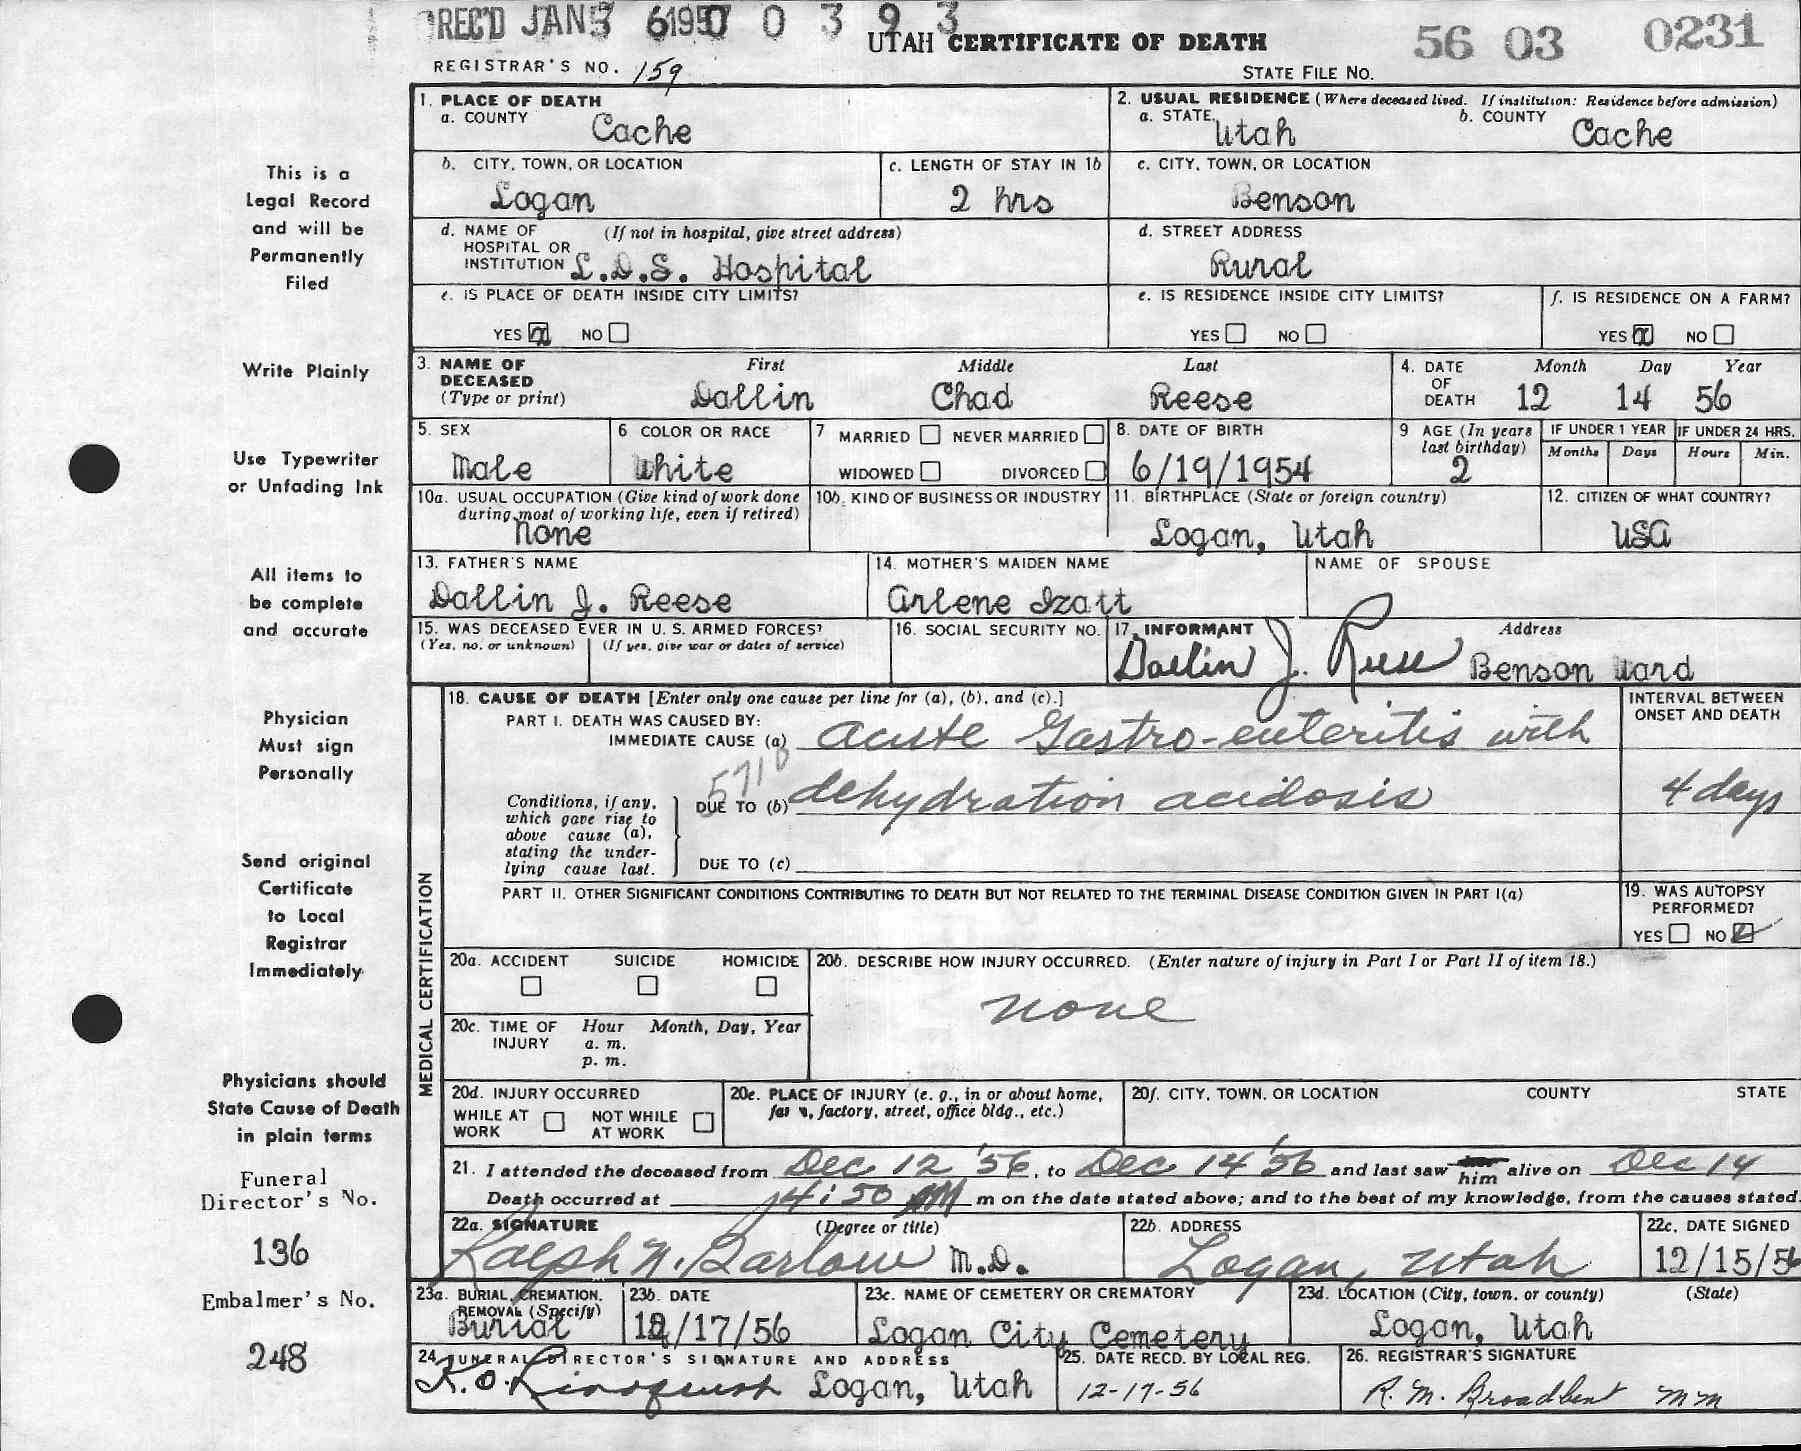 REC'D JAN 0 3 9 3
UTAH CERTIFICATE OF DEATH
56 03 0231
REGISTRAR'S NO. 159
STATE FILE NO.
1. PLACE OF DEATH
a. COUNTY
Cache
2. USUAL RESIDENCE (Where deceased lived. If institution: Residence before admission)
a. STATE Utah b. COUNTY Cache
b. CITY, TOWN, OR LOCATION
Logan
c. LENGTH OF STAY IN 1b
2 hrs
c. CITY, TOWN, OR LOCATION
Benson
d. NAME OF HOSPITAL OR INSTITUTION (If not in hospital, give street address)
L.D.S. Hospital
d. STREET ADDRESS
Rural
e. IS PLACE OF DEATH INSIDE CITY LIMITS?
YES x NO
e. IS RESIDENCE INSIDE CITY LIMITS?
YES NO
f. IS RESIDENCE ON A FARM?
YES x NO
3. NAME OF DECEASED (Type or print)
First Middle Last
Dallin Chad Reese
4. DATE OF DEATH
Month Day Year
12 14 56
5. SEX
Male
6 COLOR OR RACE
White
7 MARRIED NEVER MARRIED
WIDOWED DIVORCED
8. DATE OF BIRTH
6/19/1954
9 AGE (In years last birthday)
2
IF UNDER 1 YEAR
Months Days
IF UNDER 24 HRS.
Hours Min.
10a. USUAL OCCUPATION (Give kind of work done during most of working life, even if retired)
None
10b. KIND OF BUSINESS OR INDUSTRY
11. BIRTHPLACE (State or foreign country)
Logan, Utah
12. CITIZEN OF WHAT COUNTRY?
USA
13. FATHER'S NAME
Dallin J. Reese
14. MOTHER'S MAIDEN NAME
Arlene Izatt
NAME OF SPOUSE
15. WAS DECEASED EVER IN U. S. ARMED FORCES?
(Yes, no, or unknown) (If yes, give war or dates of service)
16. SOCIAL SECURITY NO.
17. INFORMANT Address
Dallin J. Reese Benson Ward
MEDICAL CERTIFICATION
18. CAUSE OF DEATH [Enter only one cause per line for (a), (b), and (c).]
PART I. DEATH WAS CAUSED BY:
IMMEDIATE CAUSE (a) acute Gastro-enteritis with
5710
DUE TO (b) dehydration acidosis
Conditions, if any, which gave rise to above cause (a), stating the underlying cause last.
DUE TO (c)
INTERVAL BETWEEN ONSET AND DEATH
4 days
PART II. OTHER SIGNIFICANT CONDITIONS CONTRIBUTING TO DEATH BUT NOT RELATED TO THE TERMINAL DISEASE CONDITION GIVEN IN PART I(a)
19. WAS AUTOPSY PERFORMED?
YES NO
20a. ACCIDENT SUICIDE HOMICIDE
20b. DESCRIBE HOW INJURY OCCURRED. (Enter nature of injury in Part I or Part II of item 18.)
none
20c. TIME OF INJURY Hour Month, Day, Year
a. m.
p. m.
20d. INJURY OCCURRED
WHILE AT WORK NOT WHILE AT WORK
20e. PLACE OF INJURY (e. g., in or about home, farm, factory, street, office bldg., etc.)
20f. CITY, TOWN, OR LOCATION COUNTY STATE
21. I attended the deceased from Dec 12 '56, to Dec 14 '56 and last saw him alive on Dec 14
Death occurred at 4:50 m on the date stated above; and to the best of my knowledge, from the causes stated.
22a. SIGNATURE (Degree or title)
Ralph N. Barlow M.D.
22b. ADDRESS
Logan, Utah
22c. DATE SIGNED
12/15/56
23a. BURIAL, CREMATION, REMOVAL (Specify)
Burial
23b. DATE
12/17/56
23c. NAME OF CEMETERY OR CREMATORY
Logan City Cemetery
23d. LOCATION (City, town, or county) (State)
Logan, Utah
24 FUNERAL DIRECTOR'S SIGNATURE AND ADDRESS
K.O. Lindquist Logan, Utah
25. DATE RECD. BY LOCAL REG.
12-17-56
26. REGISTRAR'S SIGNATURE
R. M. Broadbent mm
This is a
Legal Record
and will be
Permanently
Filed
Write Plainly
Use Typewriter
or Unfading Ink
All items to
be complete
and accurate
Physician
Must sign
Personally
Send original
Certificate
to Local
Registrar
Immediately
Physicians should
State Cause of Death
in plain terms
Funeral
Director's No.
136
Embalmer's No.
248